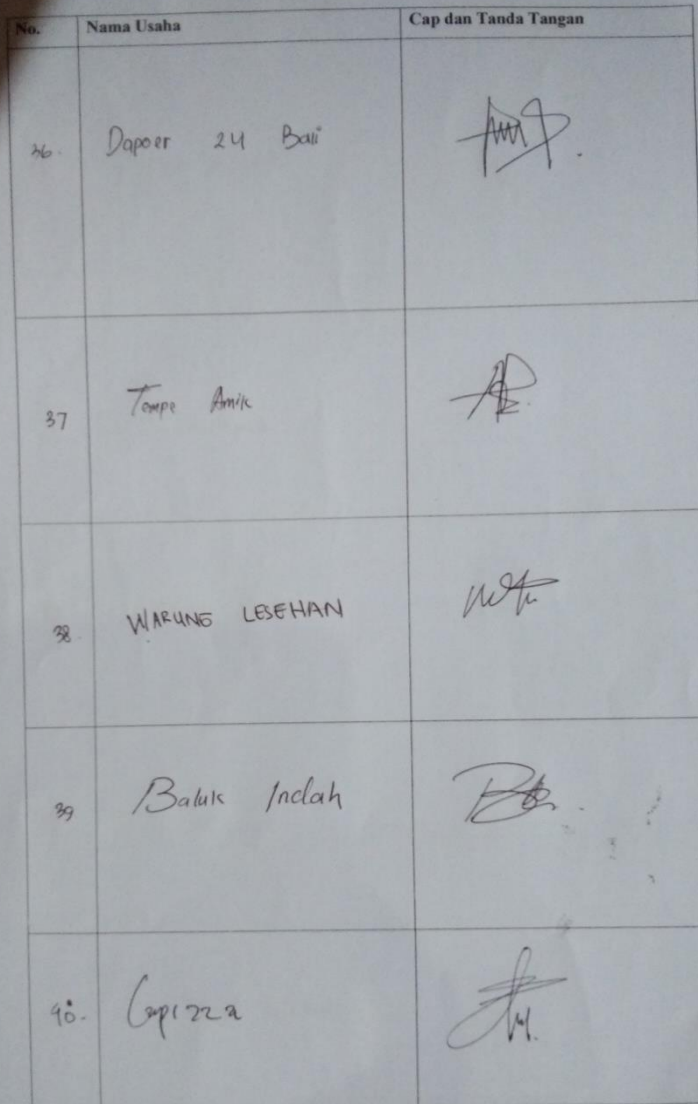 No. Nama Usaha Cap dan Tanda Tangan
36. Dapoer 24 Bali
37 Tempe Amik
38. WARUNG LESEHAN
39 Baluk Indah
40.